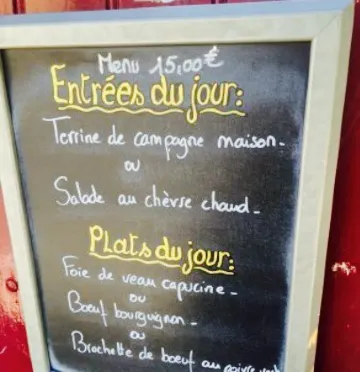 Menu 15,00€
Entrées du jour:
Terrine de campagne maison.
ou
Salade au chèvre chaud.
Plats du jour:
Foie de veau capucine.
ou
Boeuf bourguignon.
ou
Brochette de boeuf au poivre vert